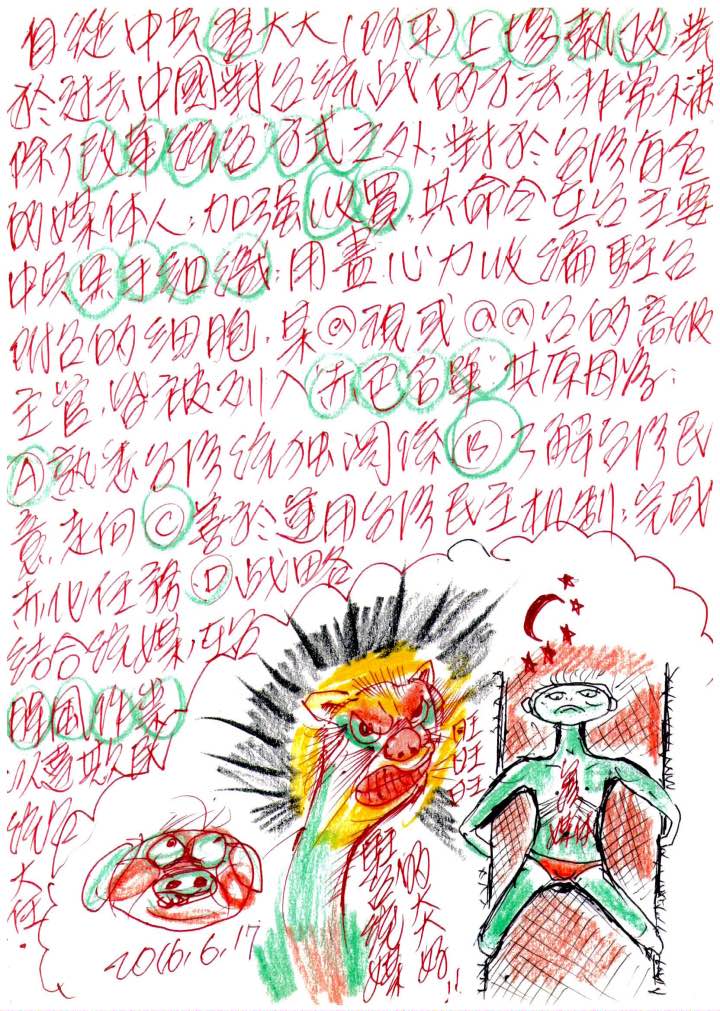 自從中共習大大(的平)上場執政,對
於过去中國對台統战的方法,非常不滿
除了改革統台方式之外,對於台湾有名
的媒体人,加強收買,其命令在台主要
中共黑手組織,用盡心力收編駐台
附台的细胞,某@視或@@台的高級
主管,皆被列入"赤色名單"其原因為:
Ⓐ熟悉台湾統独関係Ⓑ了解台湾民
意走向Ⓒ善於運用台湾民主机制,完成
赤化任務.Ⓓ战略
結合統媒,在台
作業
以達
統
大任.
旺
旺
旺
的大大好!!
統媒
2016.6.17